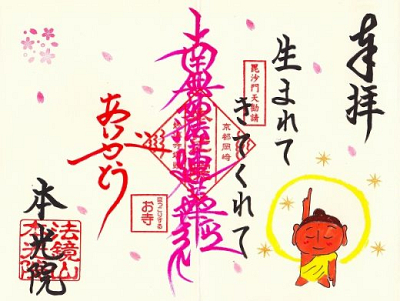 奉拝
生まれて
きてくれて
毘沙門天勧請
京都岡崎
南無妙法蓮華経
ありがとう
お寺
本光院
法鏡山